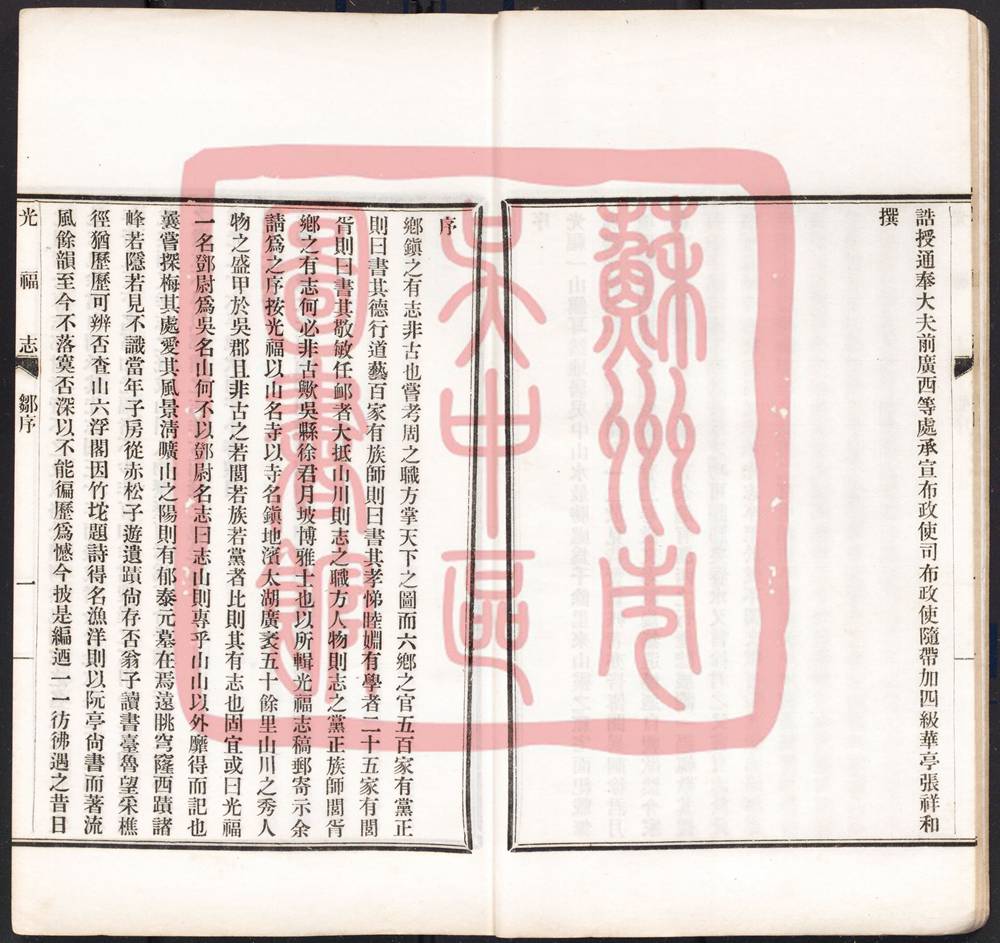 誥授通奉大夫前廣西等處承宣布政使司布政使隨帶加四級華亭張祥和
撰
序
鄉鎮之有志非古也嘗考周之職方掌天下之圖而六鄉之官五百家有黨正
則曰書其德行道藝百家有族師則曰書其孝悌睦婣有學者二十五家有閭
胥則曰書其敬敏任卹者大抵山川則志之職方人物則志之黨正族師閭胥
鄉之有志何必非古歟吳縣徐君月坡博雅士也以所輯光福志稿郵寄示余
請爲之序按光福以山名寺以寺名鎮地濱太湖廣袤五十餘里山川之秀人
物之盛甲於吳郡且非古之若閭若族若黨者比則其有志也固宜或曰光福
一名鄧尉爲吳名山何不以鄧尉名志曰志山則專乎山山以外靡得而記也
曩嘗探梅其處愛其風景淸曠山之陽則有郁泰元墓在焉遠眺穹窿西蹟諸
峰若隱若見不識當年子房從赤松子遊遺蹟尙存否翁子讀書臺魯望采樵
徑猶歷歷可辨否查山六浮閣因竹垞題詩得名漁洋則以阮亭尙書而著流
風餘韻至今不落寞否深以不能徧歷爲憾今披是編迺一一彷彿遇之昔日
光福志
鄒序
一
蘇州市
吳中區
圖書館